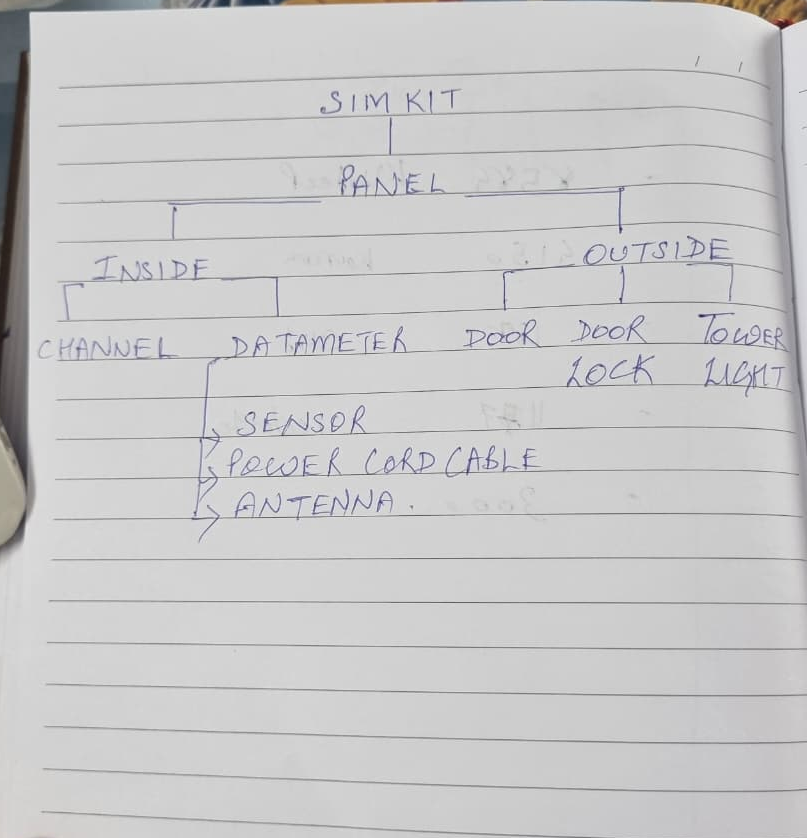 SIM KIT
PANEL
INSIDE OUTSIDE
CHANNEL DATAMETER DOOR DOOR TOWER
LOCK LIGHT
SENSOR
POWER CORD CABLE
ANTENNA.